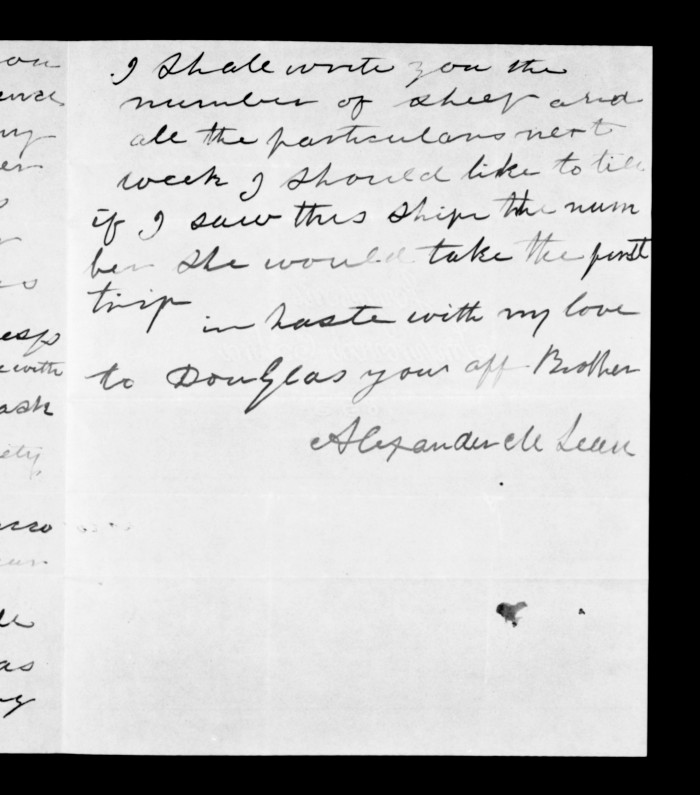 ou
my
er
esp
with
ask
ety
as
I Shall write you the
number of sheep and
all the particulars next
week I Should like to tell
if I saw this Ship the num
ber She would take the first
trip
in haste with my love
to Douglas your aff Brother
Alexander Mc Lean